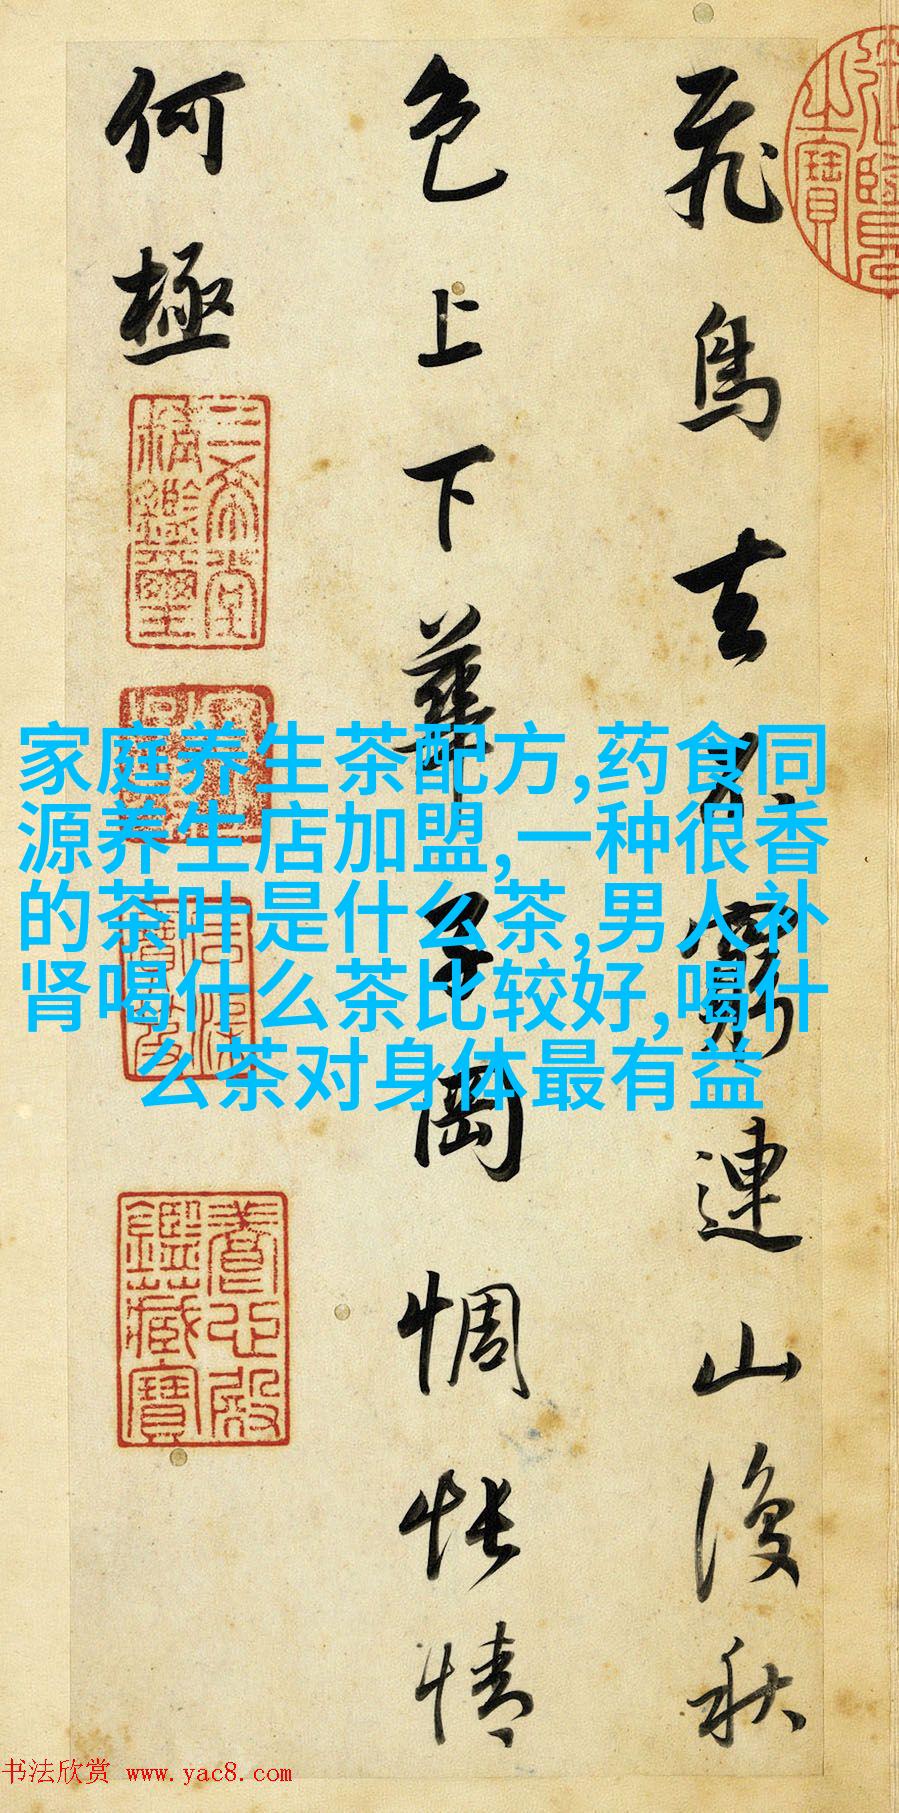 飛鳥去不窮連山復秋
色上下華子岡惆悵情
何極
三希堂
精鑑璽
養心殿
鑑藏寶
之寶
家庭养生茶配方,药食同
源养生店加盟,一种很香
的茶叶是什么茶,男人补
肾喝什么茶比较好,喝什
么茶对身体最有益
书法欣赏 www.yac8.com